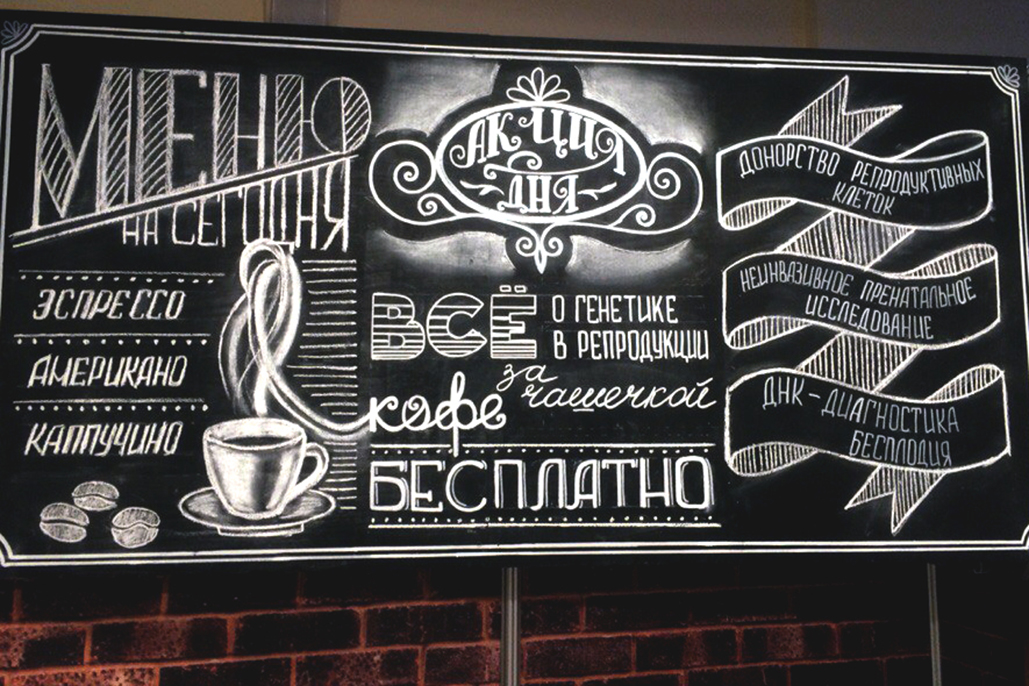 МЕНЮ
НА СЕГОДНЯ
ЭСПРЕССО
АМЕРИКАНО
КАППУЧИНО
АКЦИЯ
ДНЯ
ВСЁ О ГЕНЕТИКЕ
В РЕПРОДУКЦИИ
за чашечкой
кофе
БЕСПЛАТНО
ДОНОРСТВО РЕПРОДУКТИВНЫХ
КЛЕТОК
НЕИНВАЗИВНОЕ ПРЕНАТАЛЬНОЕ
ИССЛЕДОВАНИЕ
ДНК-ДИАГНОСТИКА
БЕСПЛОДИЯ